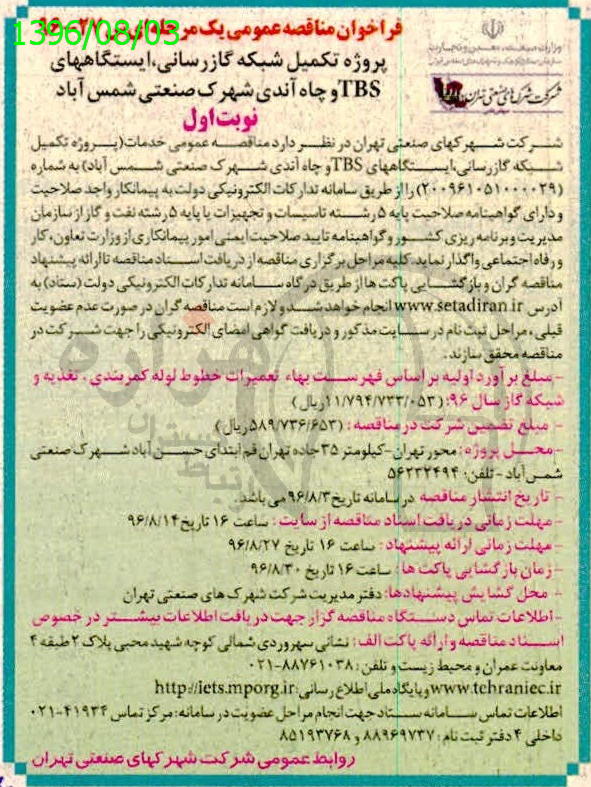 1396/08/03
فراخوان مناقصه عمومی یک مرحله ای
پروژه تکمیل شبکه گازرسانی،ایستگاههای
TBSو چاه آندی شهرک صنعتی شمس آباد
نوبت اول
وزارت صنعت، معدن و تجارت
شرکت شهرکهای صنعتی تهران
شرکت شهرکهای صنعتی تهران در نظر دارد مناقصه عمومی خدمات(پروژه تکمیل
شبکه گازرسانی،ایستگاههای TBSو چاه آندی شهرک صنعتی شمس آباد) به شماره
(۲۰۰۹۶۱۰۵۱۰۰۰۰۲۹) را از طریق سامانه تدارکات الکترونیکی دولت به پیمانکار واجد صلاحیت
و دارای گواهینامه صلاحیت پایه ۵ رشته تاسیسات و تجهیزات یا پایه ۵ رشته نفت و گاز از سازمان
مدیریت و برنامه ریزی کشور و گواهینامه تایید صلاحیت ایمنی امور پیمانکاری از وزارت تعاون، کار
و رفاه اجتماعی واگذار نماید. کلیه مراحل برگزاری مناقصه از دریافت اسناد مناقصه تا ارائه پیشنهاد
مناقصه گران و بازگشایی پاکت ها از طریق درگاه سامانه تدارکات الکترونیکی دولت (ستاد) به
آدرس www.setadiran.ir انجام خواهد شد و لازم است مناقصه گران در صورت عدم عضویت
قبلی، مراحل ثبت نام در سایت مذکور و دریافت گواهی امضای الکترونیکی را جهت شرکت در
مناقصه محقق سازند.
- مبلغ برآورد اولیه بر اساس فهرست بهاء تعمیرات خطوط لوله کمربندی، تغذیه و
شبکه گاز سال ۹۶: (۱۱/۷۹۴/۷۳۳/۰۵۳ریال)
- مبلغ تضمین شرکت در مناقصه : (۵۸۹/۷۳۶/۶۵۳ریال)
-محل پروژه: محور تهران-کیلومتر ۳۵ جاده تهران قم ابتدای حسن آباد شهرک صنعتی
شمس آباد - تلفن: ۵۶۲۳۲۴۹۴
- تاریخ انتشار مناقصه در سامانه تاریخ ۹۶/۸/۳ می باشد.
- مهلت زمانی دریافت اسناد مناقصه از سایت : ساعت ۱۶ تاریخ ۹۶/۸/۱۴
- مهلت زمانی ارائه پیشنهاد : ساعت ۱۶ تاریخ ۹۶/۸/۲۷
-زمان بازگشایی پاکت ها : ساعت ۱۶ تاریخ ۹۶/۸/۳۰
- محل گشایش پیشنهادها: دفتر مدیریت شرکت شهرک های صنعتی تهران
-اطلاعات تماس دستگاه مناقصه گزار جهت دریافت اطلاعات بیشتر در خصوص
اسناد مناقصه و ارائه پاکت الف : نشانی سهروردی شمالی کوچه شهید محبی پلاک ۲ طبقه ۴
معاونت عمران و محیط زیست و تلفن : ۸۸۷۶۱۰۳۸-۰۲۱
www.tehraniec.ir و پایگاه ملی اطلاع رسانی: http://iets.mporg.ir
اطلاعات تماس سامانه ستاد جهت انجام مراحل عضویت در سامانه: مرکز تماس ۴۱۹۳۴-۰۲۱
داخلی ۴ دفتر ثبت نام : ۸۸۹۶۹۷۳۷ و ۸۵۱۹۳۷۶۸
روابط عمومی شرکت شهرکهای صنعتی تهران